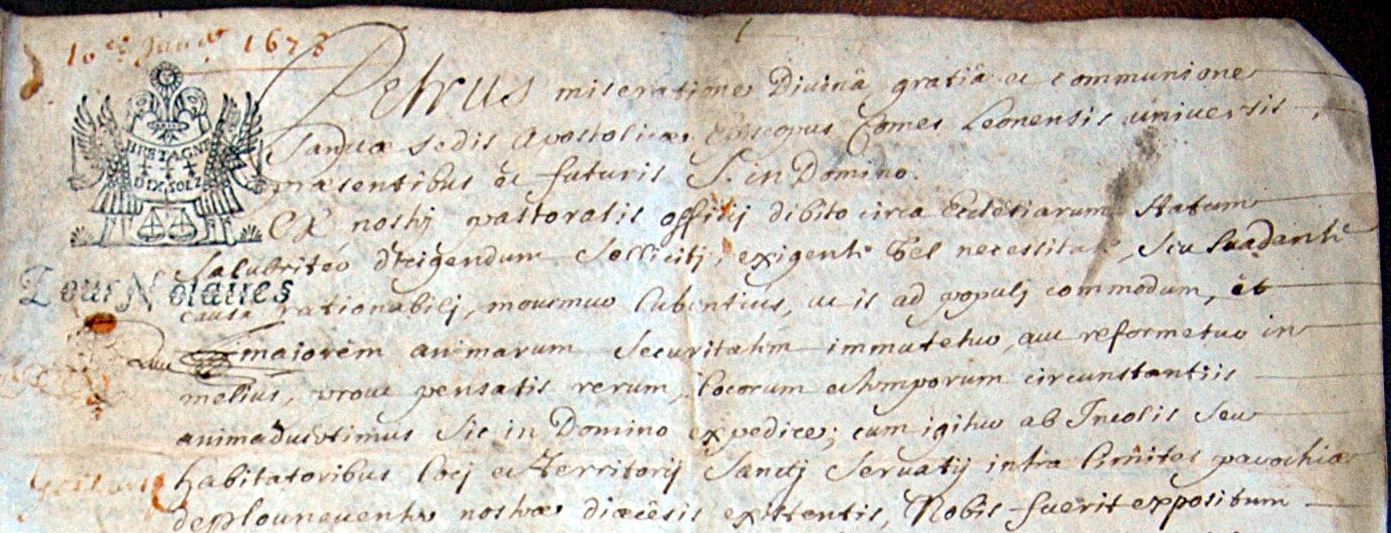 10 Janv 1678
Petrus miseratione Divinâ, gratiâ ac communione
Sanctæ sedis Apostolicæ, Episcopus Comes Leonensis universis
præsentibus et futuris S. in Domino.
BRETAGNE
DIX SOLZ
EX nostrj pastoralis officij debito circa Ecclesiarum statum
salubriter dirigendum sollicitj, exigenti vel necessitate, seu suadenti
Pour Notaires
causa rationabilj, movemur lubentius, ut is ad populj commodum, et
maiorem animarum securitatem immutetur, aut reformetur in
melius, prout pensatis rerum, locorum ac temporum circunstantiis
animadvertimus sic in Domino expedire; cum igitur ab Incolis seu
habitatoribus locj et territorij Sanctj Servatij intra limites parochiæ
de plouneventer nostræ diœcesis existentis, Nobis fuerit expositum